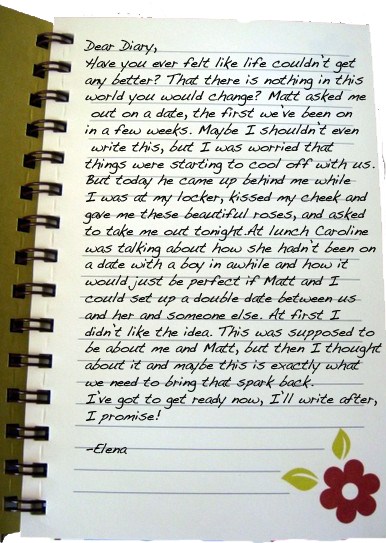 Dear Diary,
Have you ever felt like life couldn't get
any better? That there is nothing in this
world you would change? Matt asked me
out on a date, the first we've been on
in a few weeks. Maybe I shouldn't even
write this, but I was worried that
things were starting to cool off with us.
But today he came up behind me while
I was at my locker, kissed my cheek and
gave me these beautiful roses, and asked
to take me out tonight.At lunch Caroline
was talking about how she hadn't been on
a date with a boy in awhile and how it
would just be perfect if Matt and I
could set up a double date between us
and her and someone else. At first I
didn't like the idea. This was supposed to
be about me and Matt, but then I thought
about it and maybe this is exactly what
we need to bring that spark back.
I've got to get ready now, I'll write after,
I promise!
-Elena